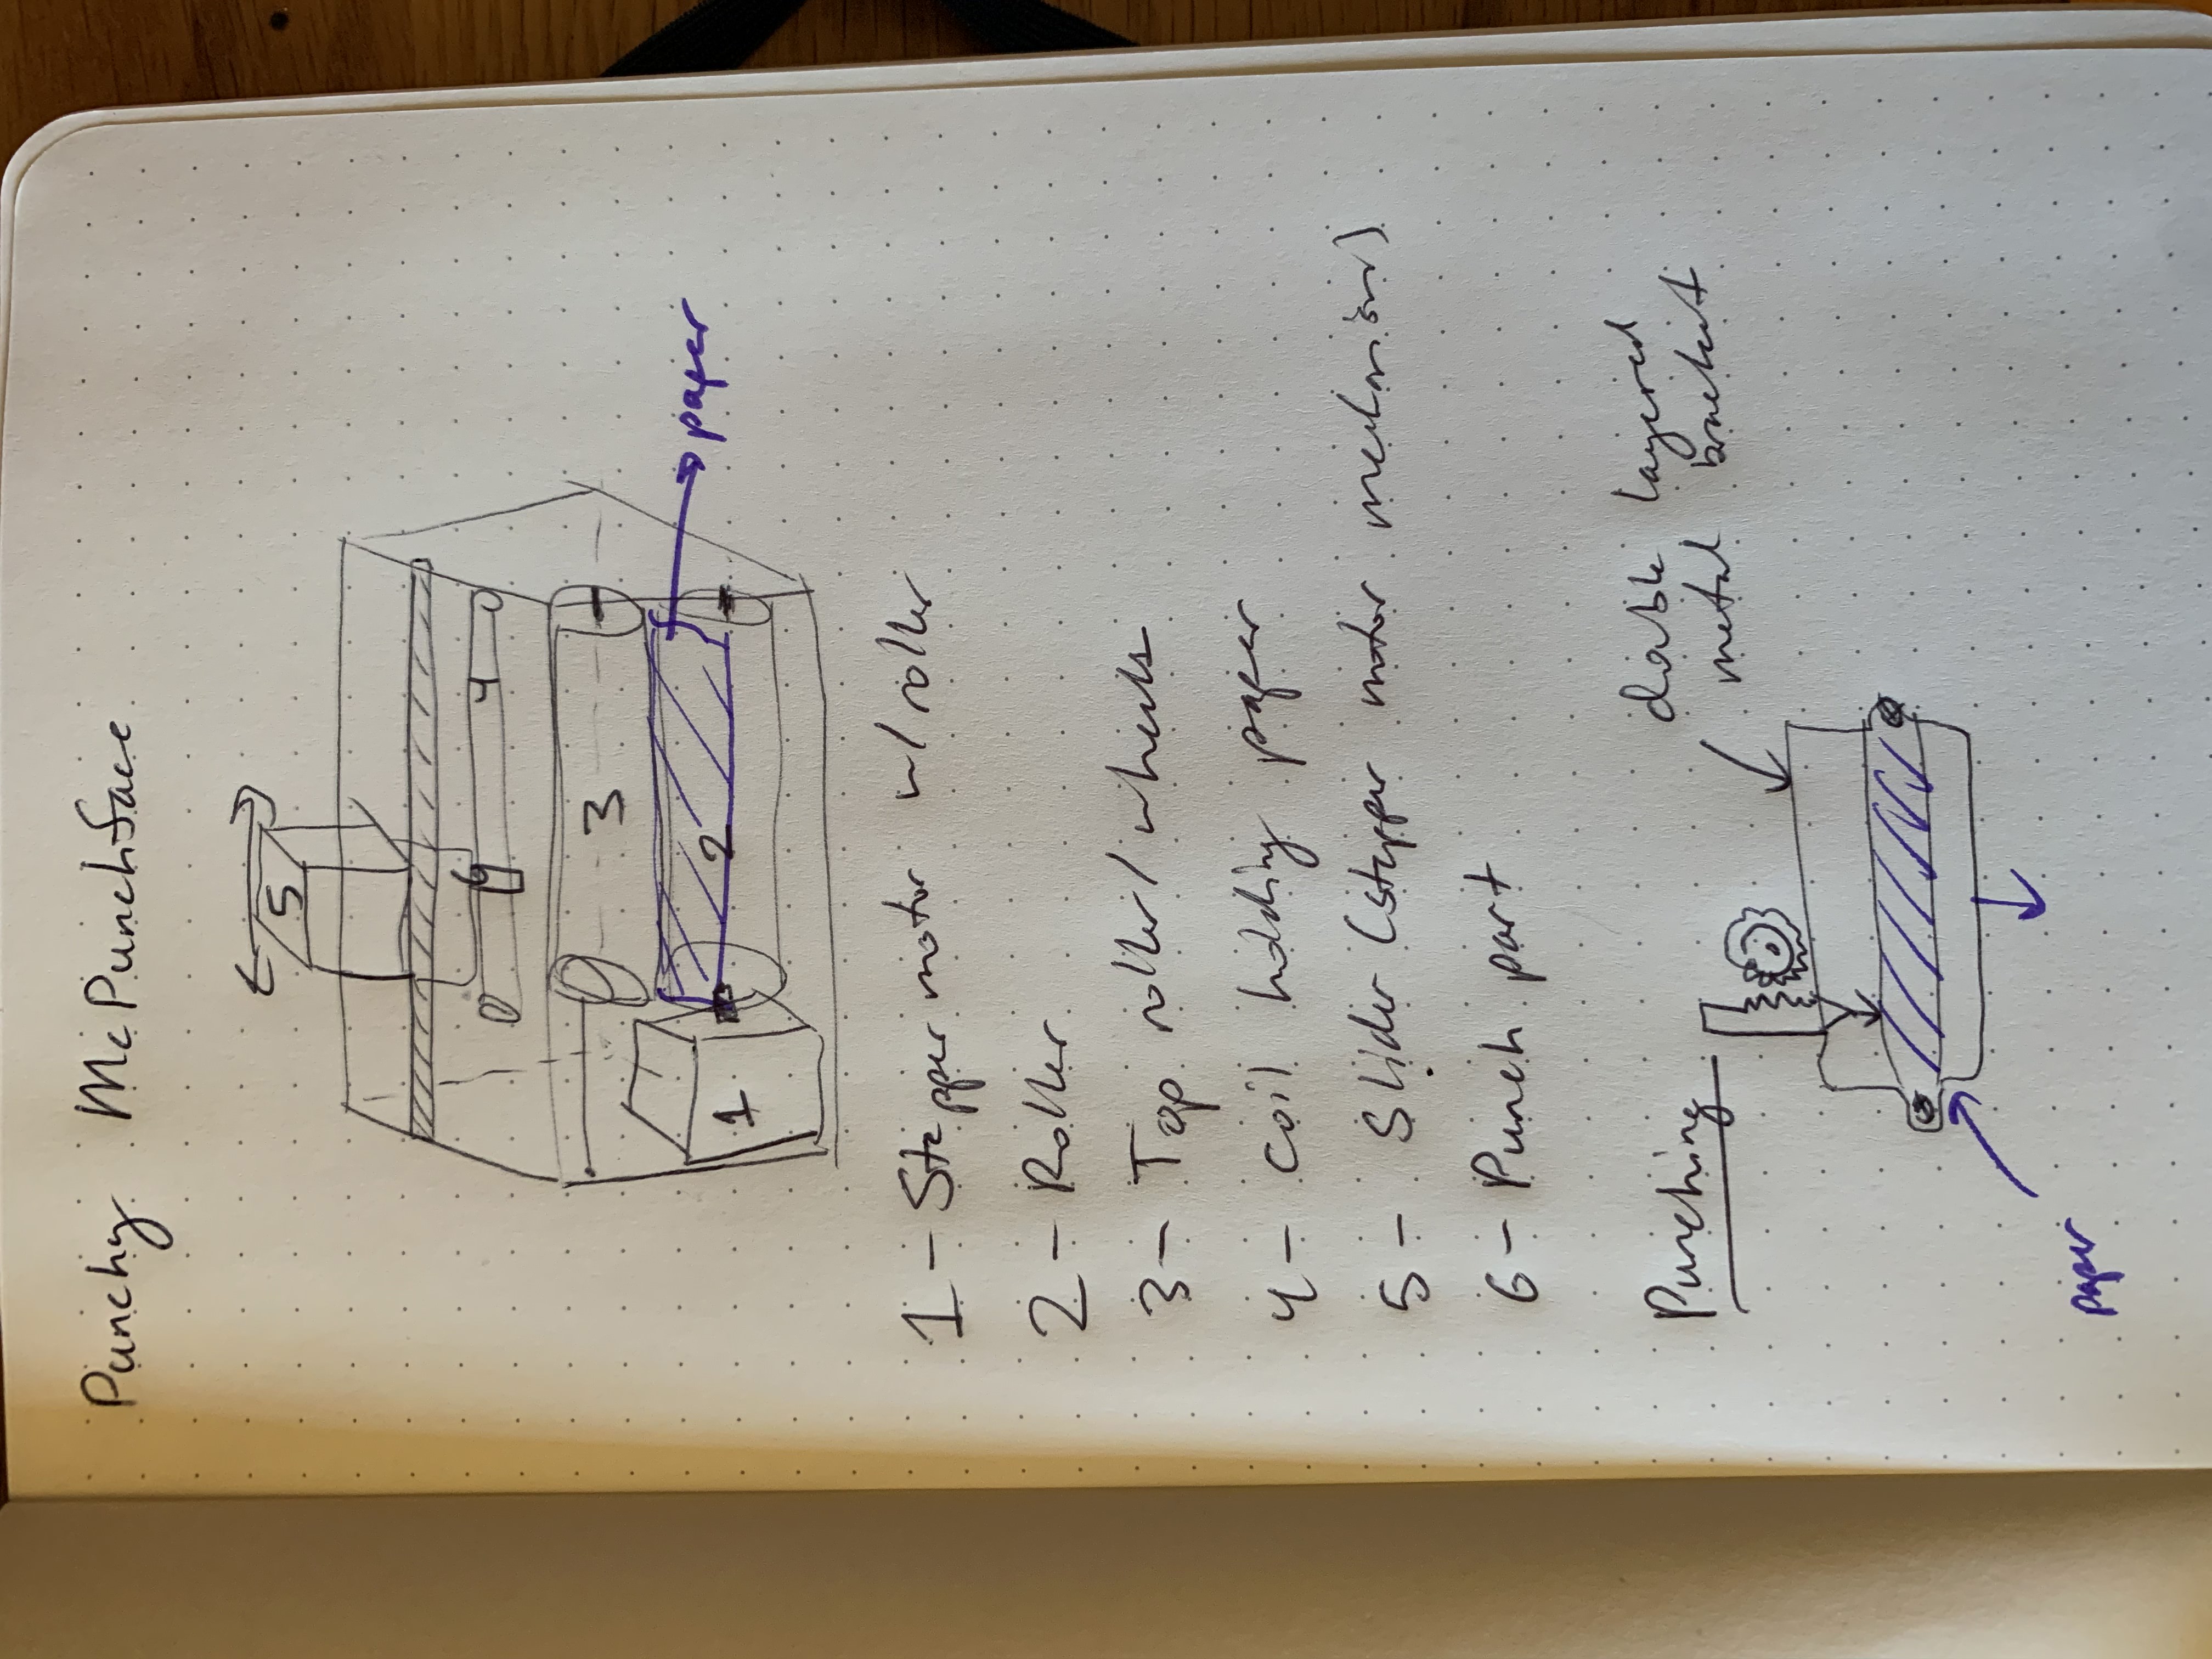 Punchy McPunchface
5
6
4
3
2
paper
1
1 - Stepper motor w/ roller
2 - Roller
3 - Top roller/wheels
4 - coil holding paper
5 - Slider (stepper motor mechanism)
6 - Punch part
Punching
double layered
metal bracket
paper